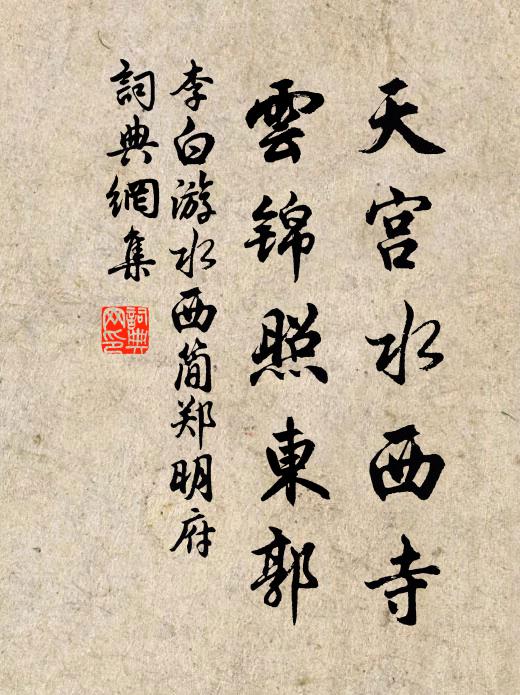 天宮水西寺
雲锦照東郭
李白游水西简郑明府
詞典網集
詞典
网印